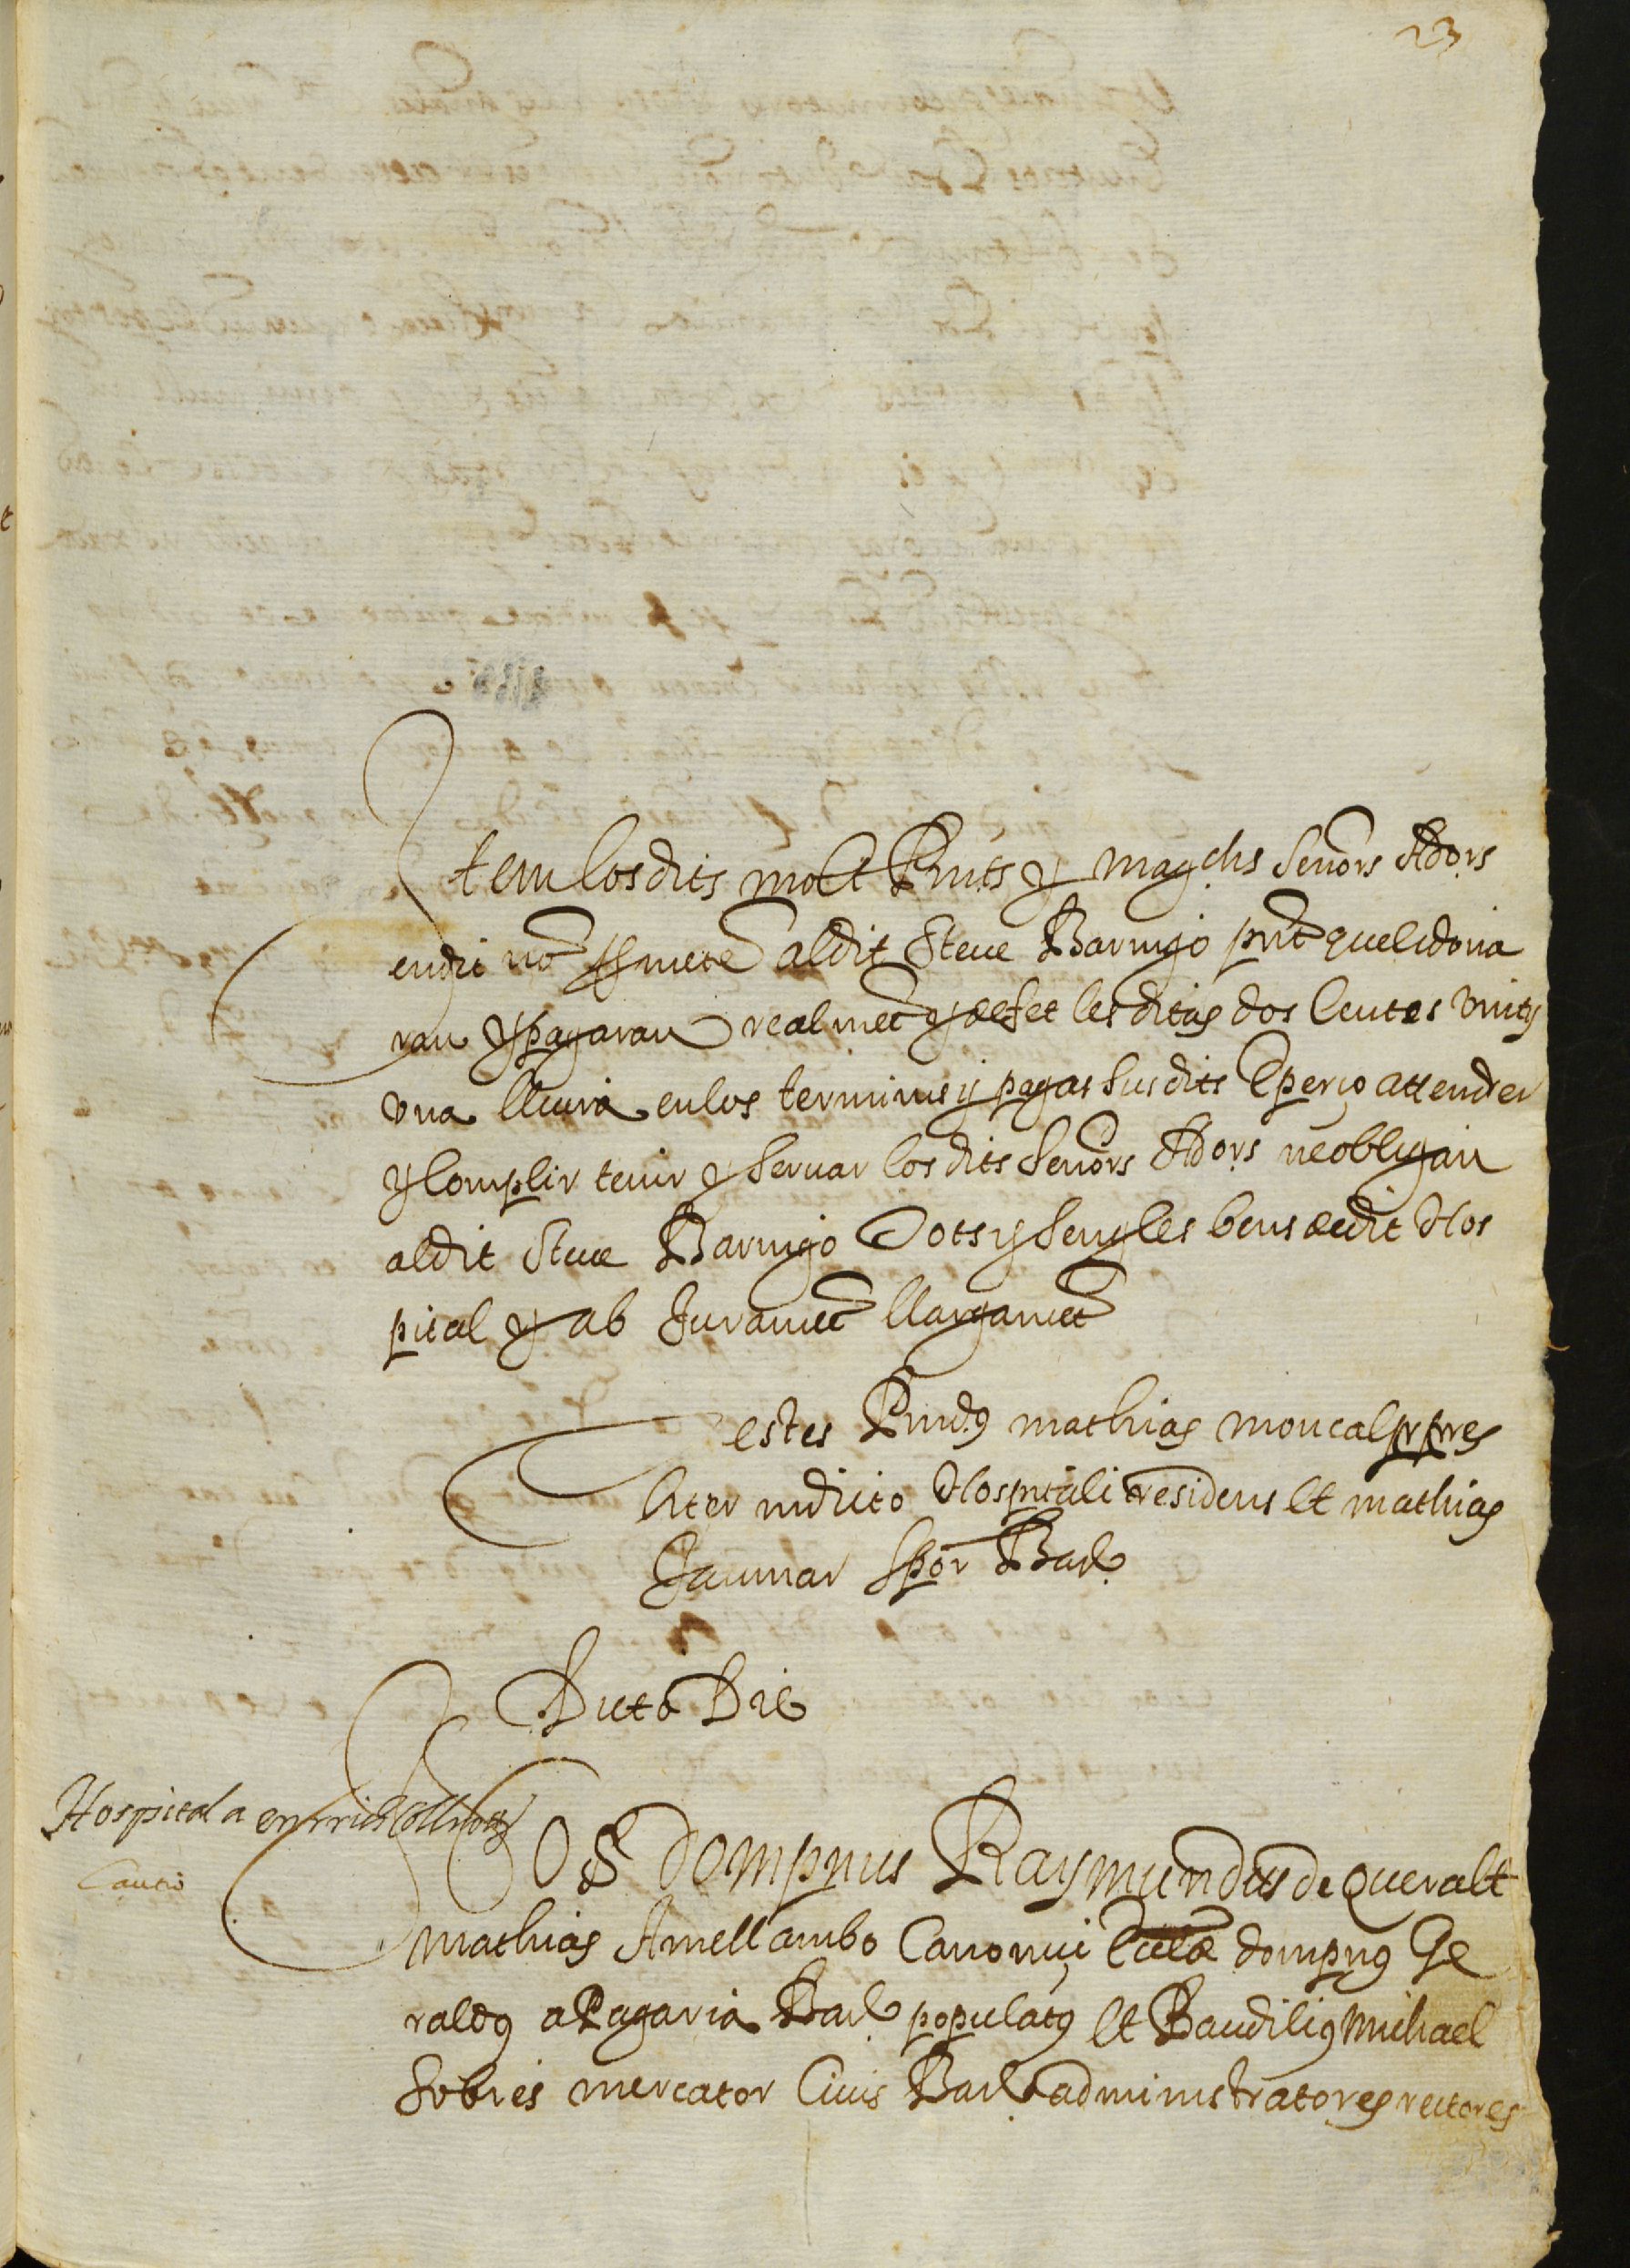 23
Item los dits molt Rnts y magchs señors Adors
en dit nō prometē al dit Steue Barrugo pnt que li dona
ran y pagaran realmēt y de fet les ditas dos centes vuity
vna lliura en los terminis y pagas susdits E per ço attendrer
y complir tenir y seruar los dits señors Adors ne obligan
al dit Steue Barrugo Tots y sengles bens de dit Hos
pital y ab Juramēt llargamēt
Testes Rndꝰ mathias moncal prpres
bter in dicto Hospitali residens et mathias
Jaumar Sṗor Barc.
Dicto Die
Hospital a enrrich
Cautio
NOS dompnus Raymundus de Queralt
mathias Amell ambo Canonici dompnꝰ Ge
raldꝰ a Pagaria Barc. populatꝰ et Baudiliꝰ Michael
Sobies mercator Ciuis Barc. administratores rectores